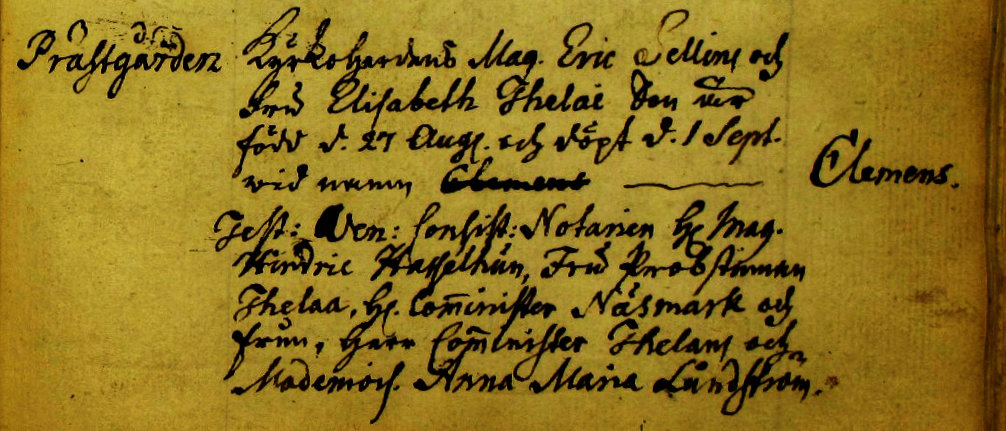 Prästgården
Kyrkoherdens Mag. Eric Sellins och
Fru Elisabeth Thelai Son
född d. 27 Aug. och döpt d. 1 Sept.
wid namn Clemens
Clemens.
Test: Ven: Consist: Notarien H. Mag.
Hindric Hasselhun, Fru Probstinnan
Thelaa, H. Com̄inister Näsmark och
frun, Herr Com̄inister Thelaus och
Mademois. Anna Maria Lundström.